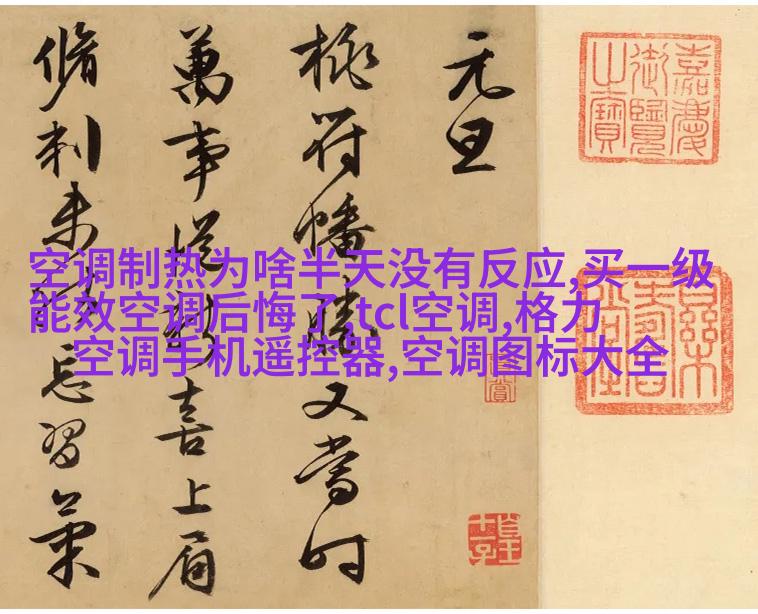 元旦
桃符幡勝又當時
萬事從新喜上眉
脩刺未忘習
嘉慶御覽之寶
空调制热为啥半天没有反应,买一级
能效空调后悔了,tcl空调,格力
空调手机遥控器,空调图标大全